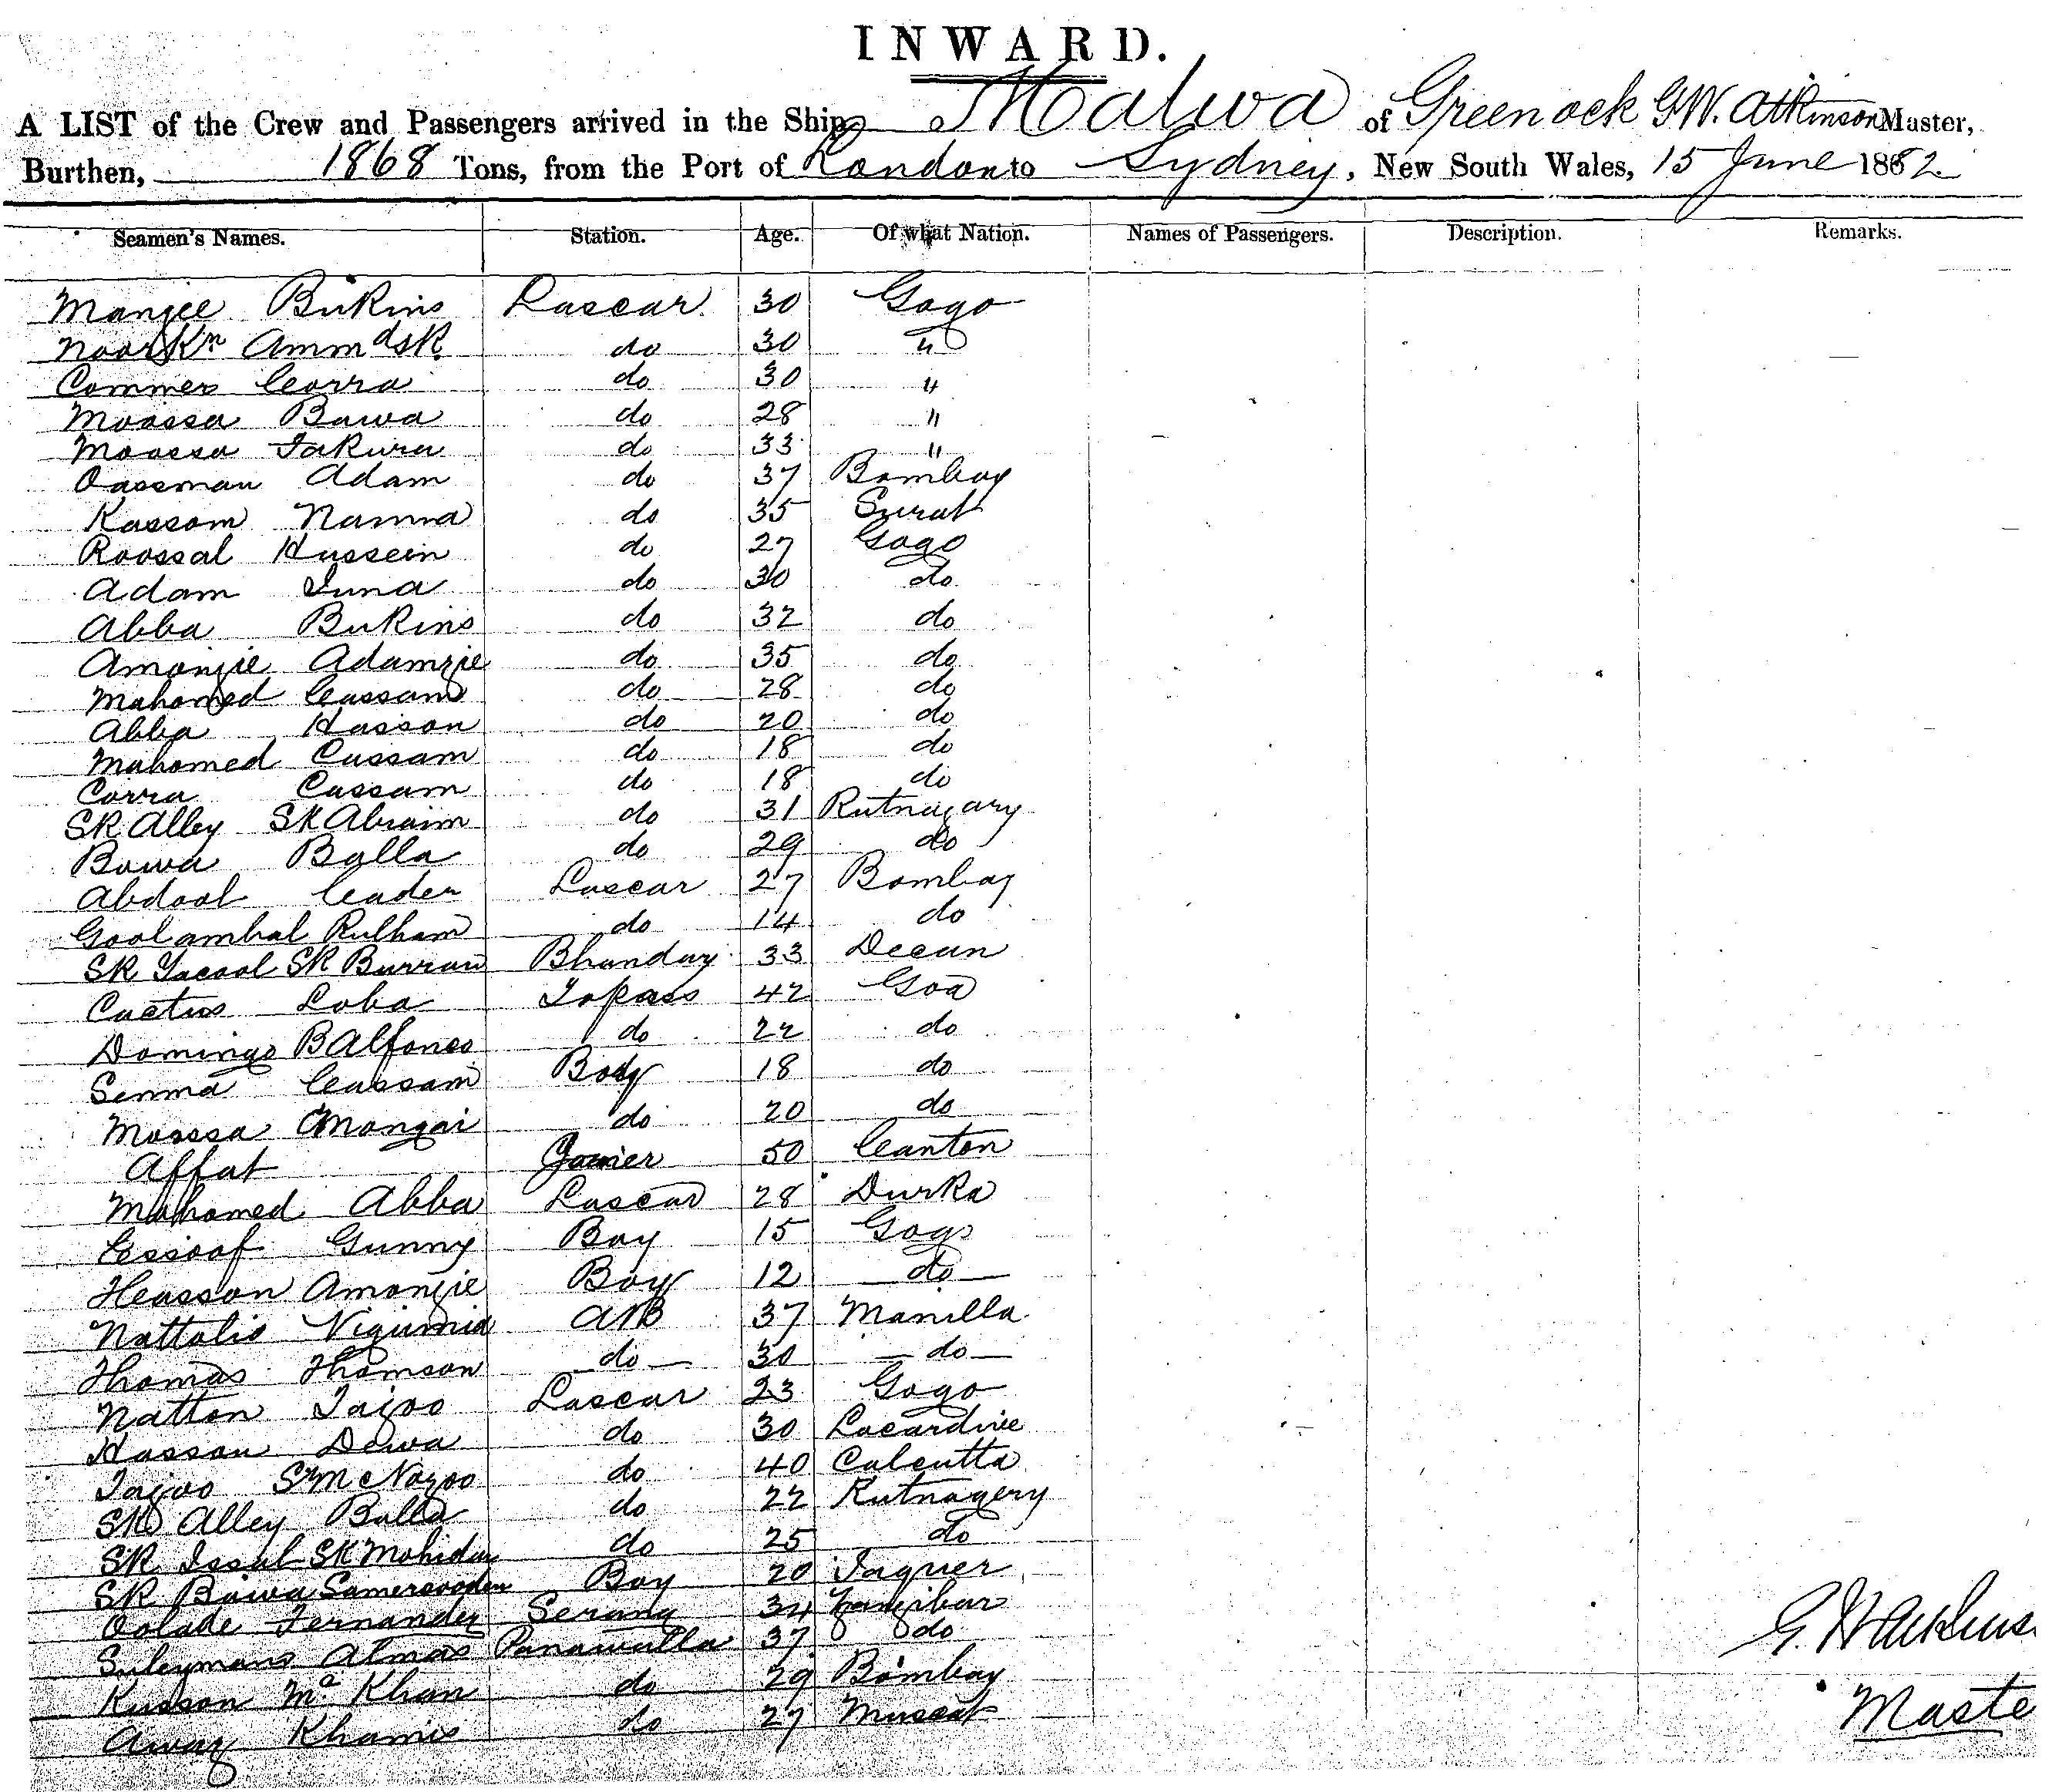 INWARD.
A LIST of the Crew and Passengers arrived in the Ship Malwa of Greenock G.W. Atkinson Master,
Burthen, 1868 Tons, from the Port of London to Sydney, New South Wales, 15 June 1882
Seamen's Names. Station. Age. Of what Nation. Names of Passengers. Description. Remarks.
Manjee Bukins Lascar 30 Gogo
Noor Kn Ammd SK do 30 "
Commer Corra do 30 "
Moossa Bawa do 28 "
Moossa Jakura do 33 "
Oassman Adam do 37 Bombay
Kassom Namna do 35 Surat
Roossal Hussein do 27 Gogo
Adam Juna do 30 do
Abba Bukins do 32 do
Amonjie Adamzie do 35 do
Mahomed Cassam do 28 do
Abba Hasson do 20 do
Mahomed Cassam do 18 do
Corra Cassam do 18 do
SK Alley SK Abraim do 31 Rutnagary
Bawa Balla do 29 do
Abdool Cader Lascar 27 Bombay
Goolambal Rulham do 14 do
SK Yacool SK Burran Bhandary 33 Decan
Caetus Loba Topass 42 Goa
Domingo B Alfonso do 22 do
Senma Cassam Body 18 do
Moossa Amonjai do 20 do
Affat Joiner 50 Canton
Mahomed Abba Lascar 28 Durka
Essoof Gunny Boy 15 Gogo
Heasson Amonjie Boy 12 do
Nattalio AB 37 Manilla
Thomas Thomson do 30 do
Natton Tajoo Lascar 23 Gogo
Hassan Dewa do 30 Lacardive
Tajoo do 40 Calcutta
SK Alley Balla do 22 Rutnagery
SK Issub SK Mohidan do 25 do
SK Bawa Boy 20 Jaguer
Oolade Fernandez Serang 34 Zanzibar
Suleymans Almas Panawalla 37 do
Kusson Ma Khan do 29 Bombay
Awaz Khamis do 27 Muscat
G. W Atkins
Maste